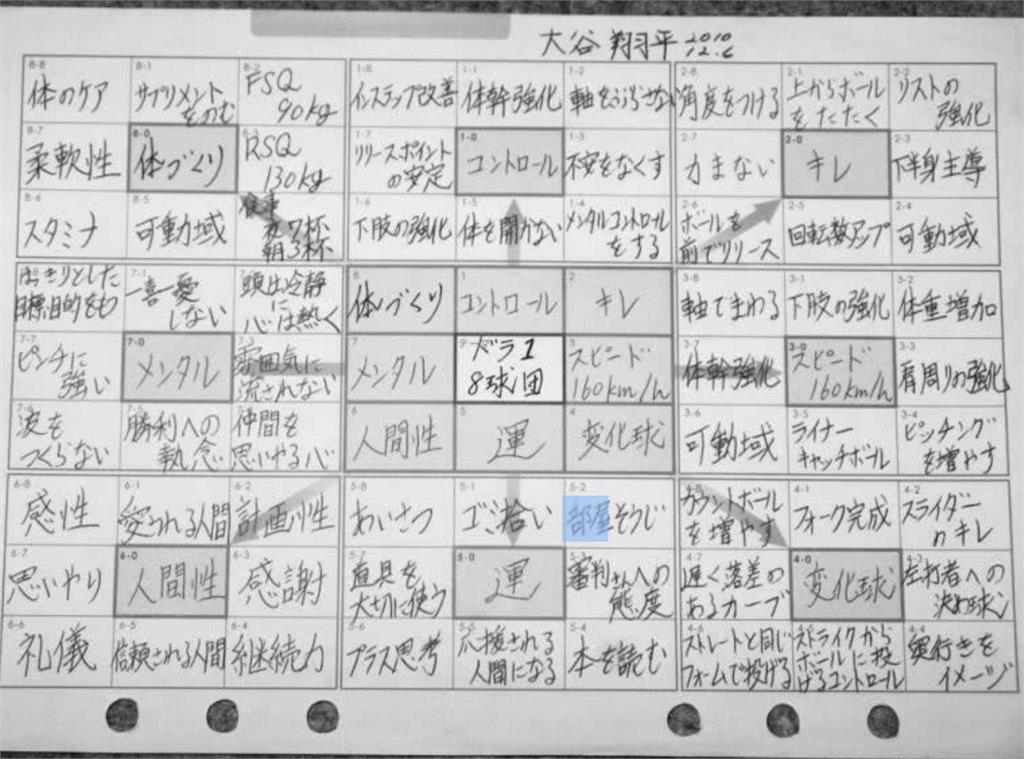 大谷 翔平 2010
12.6
8-8
体のケア
8-1
サプリメント
をのむ
8-2
FSQ
90kg
8-7
柔軟性
8-0
体づくり
8-3
RSQ
130kg
8-6
スタミナ
8-5
可動域
食事
夜7杯
朝3杯
1-8
インステップ改善
1-1
体幹強化
1-2
軸をぶらさない
1-7
リリースポイント
の安定
1-0
コントロール
1-3
不安をなくす
1-6
下肢の強化
1-5
体を開かない
1-4
メンタルコントロール
をする
2-8
角度をつける
2-1
上からボール
をたたく
2-2
リストの
強化
2-7
力まない
2-0
キレ
2-3
下半身主導
2-6
ボールを
前でリリース
2-5
回転数アップ
2-4
可動域
はっきりとした
目標、目的をもつ
7-1
一喜一憂
しない
頭は冷静
に
心は熱く
7-7
ピンチに
強い
7-0
メンタル
7-3
雰囲気に
流されない
7-6
波を
つくらない
7-5
勝利への
執念
7-4
仲間を
思いやる心
8
体づくり
1
コントロール
2
キレ
7
メンタル
ドラ1
8球団
3
スピード
160km/h
6
人間性
5
運
4
変化球
3-8
軸でまわる
3-1
下肢の強化
3-2
体重増加
3-7
体幹強化
3-0
スピード
160km/h
3-3
肩周りの強化
3-6
可動域
3-5
ライナー
キャッチボール
3-4
ピッチング
を増やす
6-8
感性
6-1
愛される人間
6-2
計画性
6-7
思いやり
6-0
人間性
6-3
感謝
6-6
礼儀
6-5
信頼される人間
6-4
継続力
5-8
あいさつ
5-1
ゴミ拾い
5-2
部屋そうじ
5-7
道具を
大切に使う
5-0
運
5-3
審判さんへの
態度
5-6
プラス思考
5-5
応援される
人間になる
5-4
本を読む
4-8
カウントボール
を増やす
4-1
フォーク完成
4-2
スライダー
のキレ
4-7
遅く落差の
あるカーブ
4-0
変化球
4-3
左打者への
決め球
4-6
ストレートと同じ
フォームで投げる
4-5
ストライクから
ボールに投
げるコントロール
4-4
奥行きを
イメージ